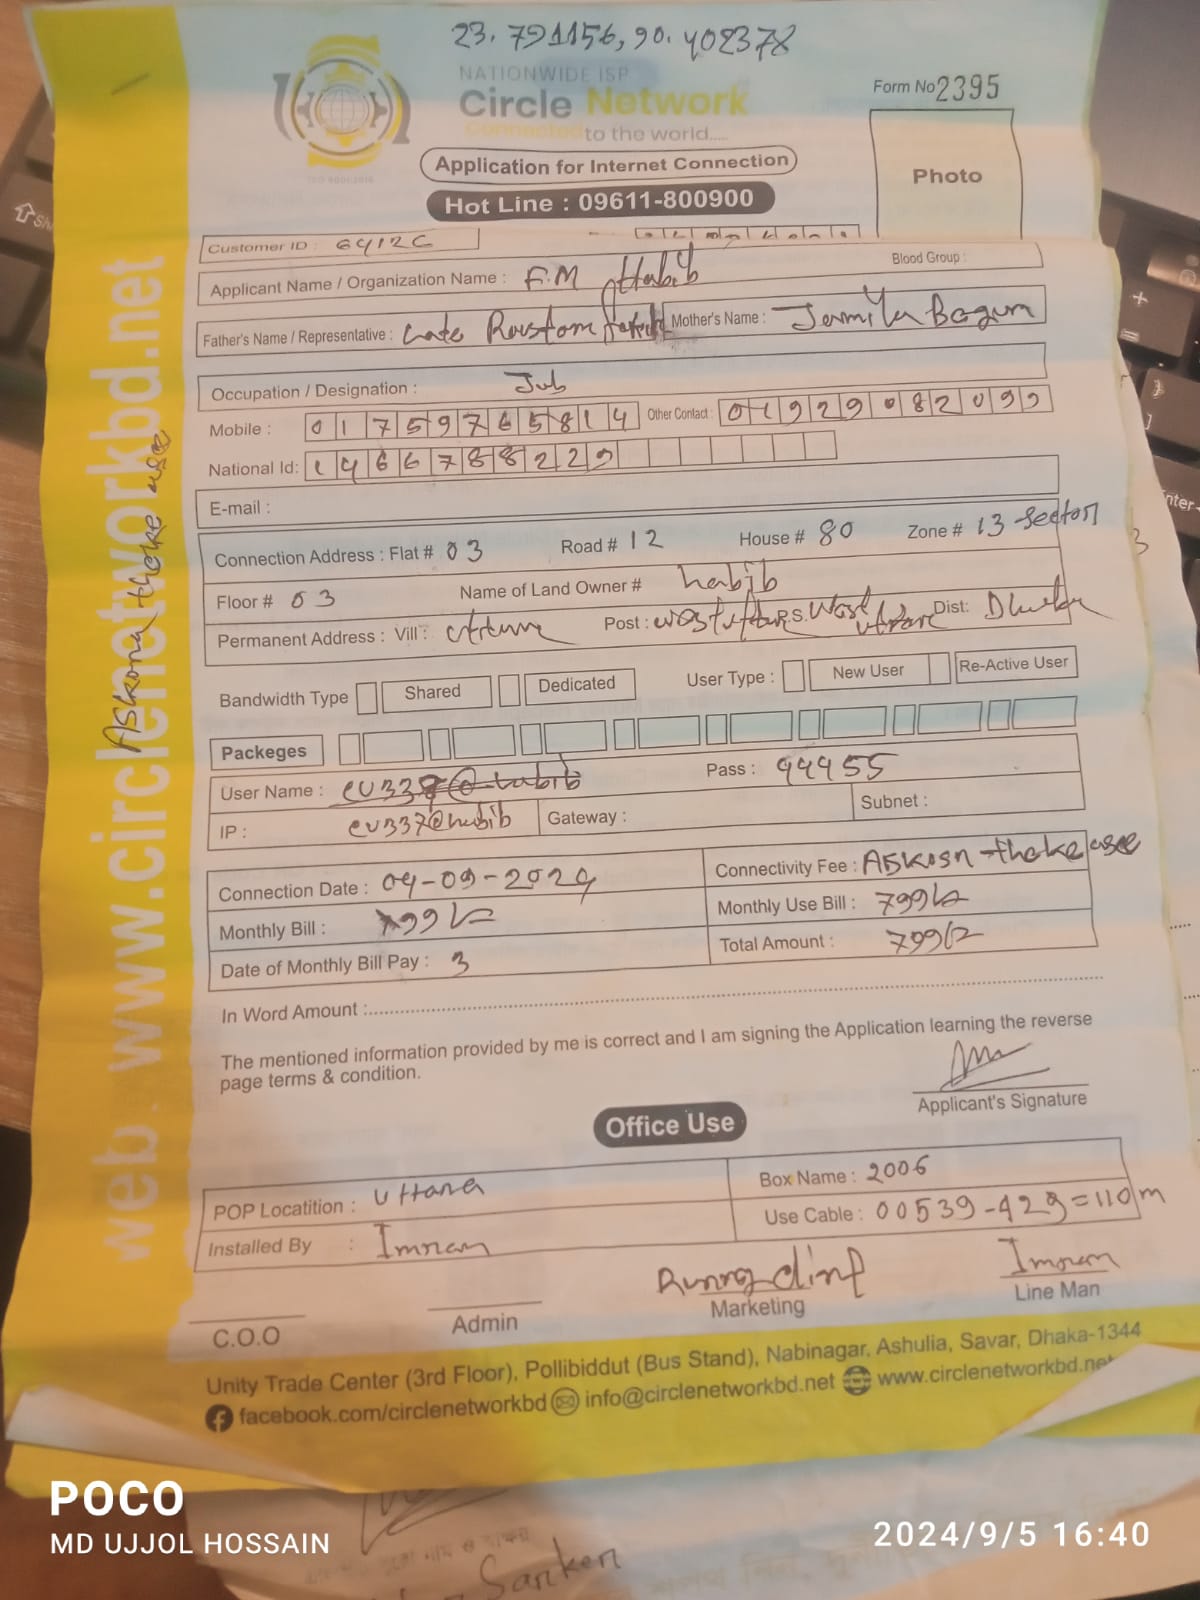 23.791156, 90.402378
NATIONWIDE ISP
Circle Network
Connected to the world.....
Form No 2395
Application for Internet Connection
Photo
Hot Line : 09611-800900
Customer ID : 6412C
Applicant Name / Organization Name : F.M Habib
Blood Group :
Father's Name / Representative : Late Roustom
Mother's Name : Jamila Begum
Occupation / Designation : Job
Mobile : 01759765814
Other Contact : 01929082099
National Id: 1466788229
E-mail :
Connection Address : Flat # 03 Road # 12 House # 80 Zone # 13 Sector
Floor # 03 Name of Land Owner # habib
Permanent Address : Vill : Post : P.S. West Dist: Dhaka
Bandwidth Type Shared Dedicated User Type : New User Re-Active User
Packeges
User Name : Pass : 99955
IP : cu337@habib Gateway : Subnet :
Connection Date : 04-09-2024
Connectivity Fee : Askosn theke asce
Monthly Bill : 799/=
Monthly Use Bill : 799/=
Date of Monthly Bill Pay : 3
Total Amount : 799/=
In Word Amount :
The mentioned information provided by me is correct and I am signing the Application learning the reverse
page terms & condition.
Applicant's Signature
Office Use
POP Locatition : Uttara
Box Name : 2006
Installed By : Imran
Use Cable : 00539-429=110m
C.O.O
Admin
Marketing
Imran
Line Man
Unity Trade Center (3rd Floor), Pollibiddut (Bus Stand), Nabinagar, Ashulia, Savar, Dhaka-1344
facebook.com/circlenetworkbd info@circlenetworkbd.net www.circlenetworkbd.net
web : www.circlenetworkbd.net
Askona theke asce
Sarker
POCO
MD UJJOL HOSSAIN
2024/9/5 16:40